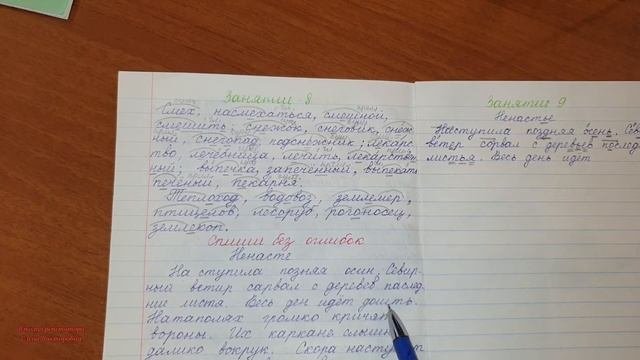 Занятии 8
Смех, насмехаться, смешной,
смешить; снежок, снеговик, снеж-
ный, снегопад, подснежник; лекарс-
тво, лечебница, лечить, лекарствен-
ный; выпечка, запеченный, выпекать
печеный, пекарня.
Теплоход, водовоз, землемер,
птицелов, лесоруб, рогоносец,
землекоп.
Спиши без ошибок
Ненасте
На ступила позняя осин, Севир-
ный ветир сарвал с деревев паслед-
ние листя. Весь ден идёт дошть.
Натаполях громко кричят
вороны. Их каркане слышн
далико вокрук. Скора наступит
Занятии 9
Ненастье
Наступила поздняя осень. Сев
ветер сорвал с деревьев послед
листья. Весь день идёт